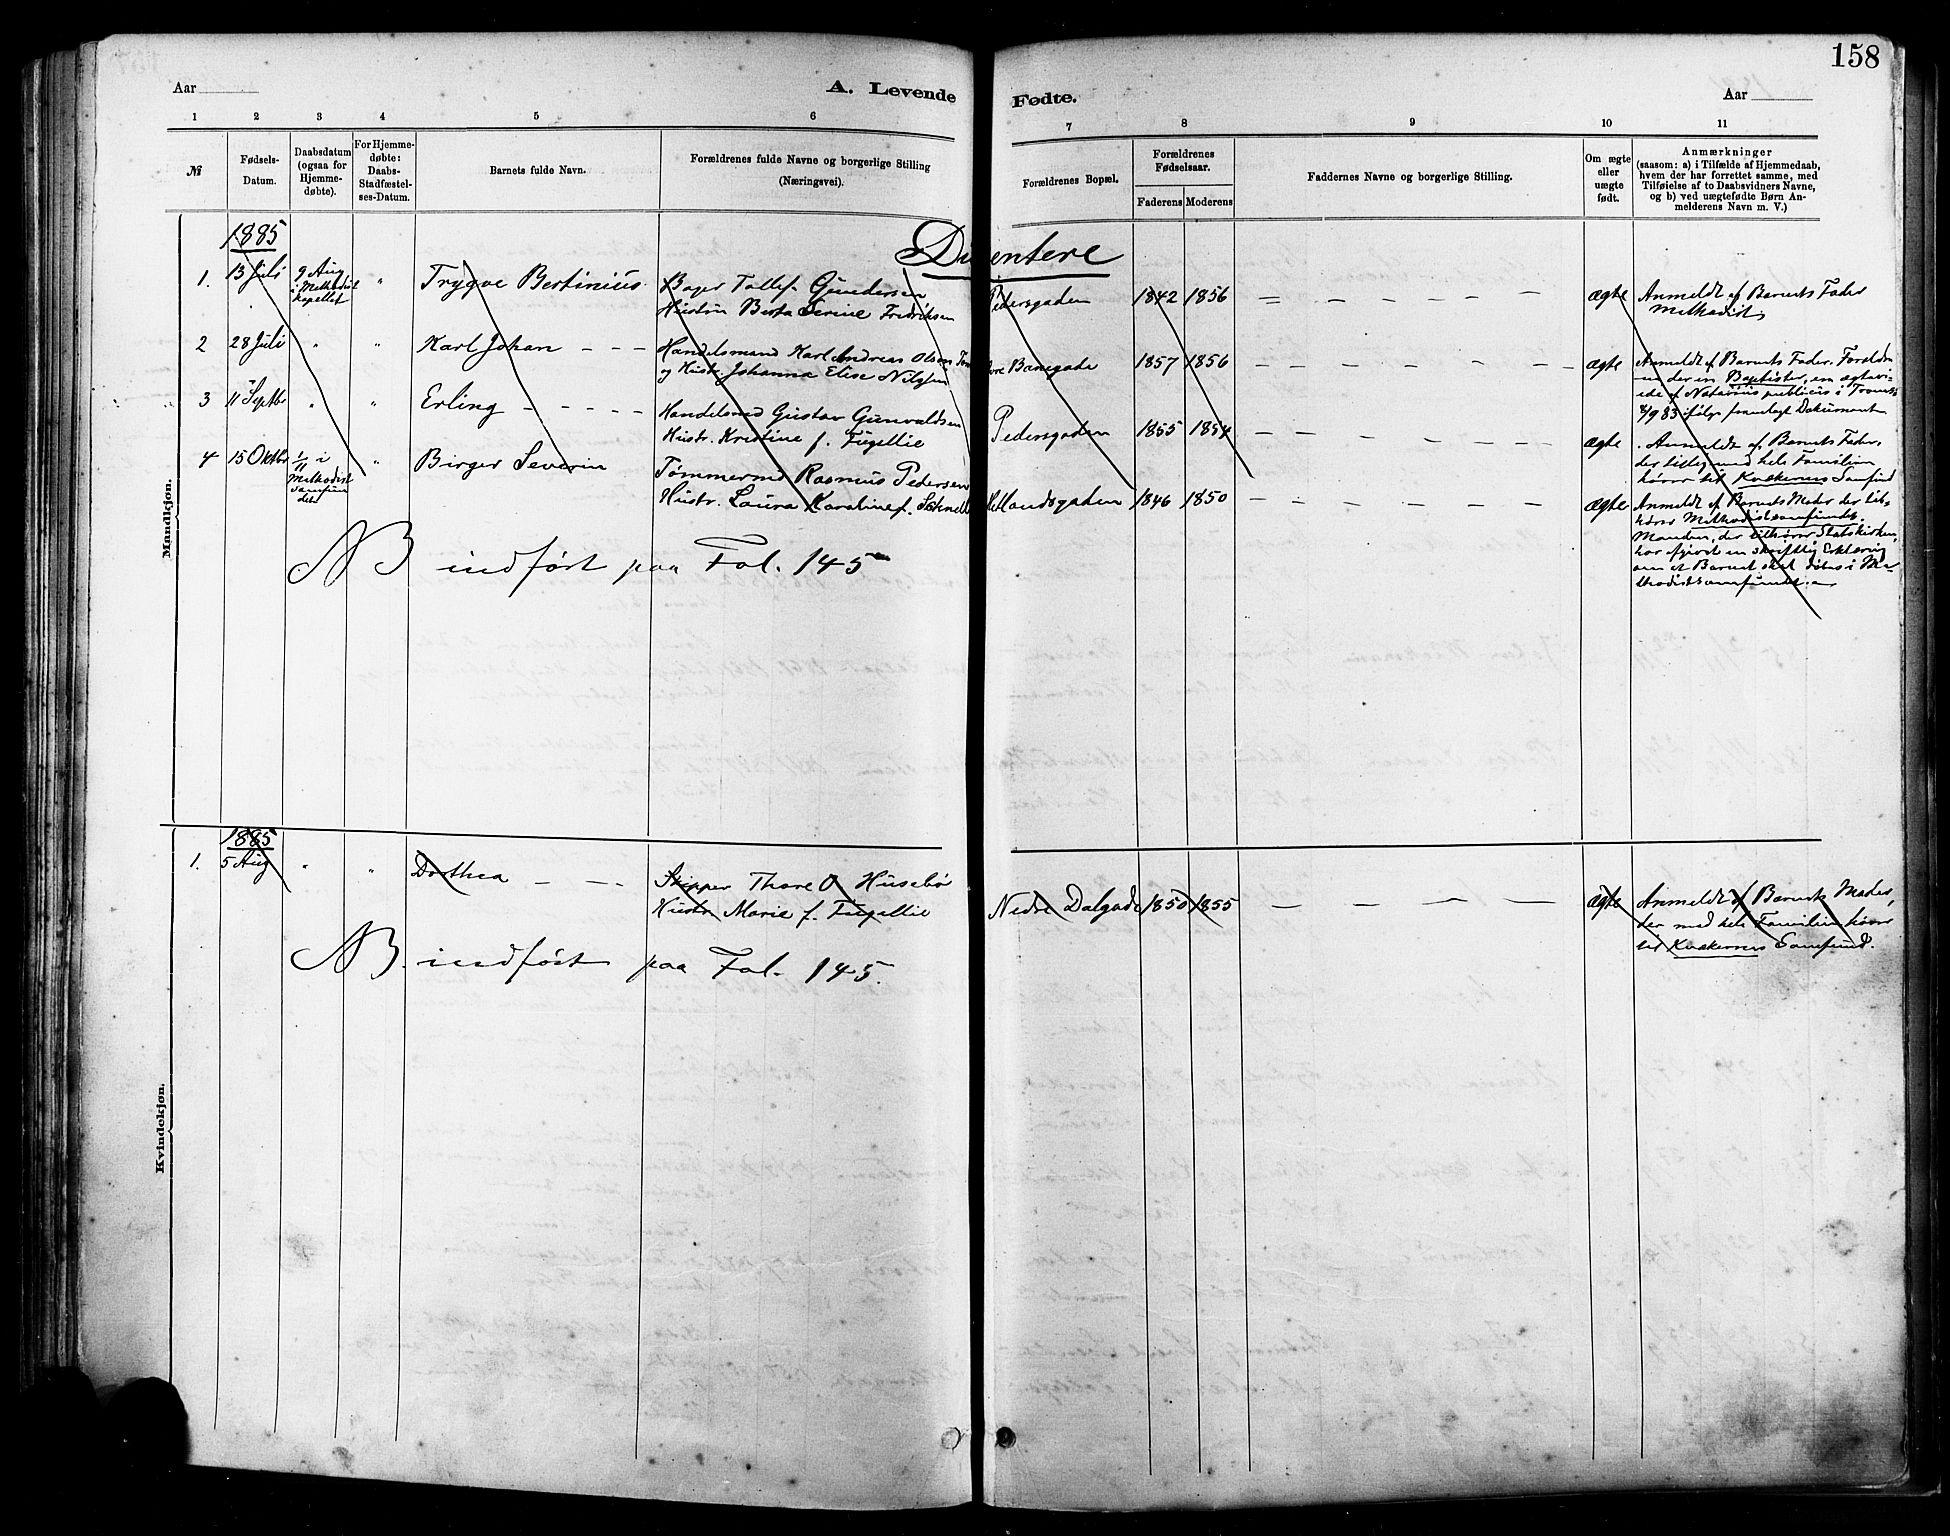 158
Aar
A. Levende
Fødte.
Aar
1 2 3 4 5 6 7 8 9 10 11
№
Fødsels-
Datum.
Daabsdatum
(ogsaa for
Hjemme-
døbte).
For Hjemme-
døbte:
Daabs-
Stadfæstel-
ses-Datum.
Barnets fulde Navn.
Forældrenes fulde Navne og borgerlige Stilling
(Næringsvei).
Forældrenes Bopæl.
Forældrenes
Fødselsaar.
Faderens Moderens
Faddernes Navne og borgerlige Stilling.
Om ægte
eller
uægte
født.
Anmærkninger
(saasom: a) i Tilfælde af Hjemmedaab,
hvem der har forrettet samme, med
Tilføielse af to Daabsvidners Navne,
og b) ved uægtefødte Børn An-
melderens Navn m. V.)
Mandkjøn.
1885
Disentere
1. 13 Juli
9 Aug
i Methodist
kapellet
"
Trygve Bertinius
Bager Tollef Gundersen
Hustru Berta Serine Fredriksen
Pedersgaden 1842 1856 — — — — — — ægte
Anmeldt af Barnets Fader
Methodist
2 28 Juli " " Karl Johan - - -
Handelsmand Karl Andreas Olsen
og Hustr. Johanna Elise Nilsen
Banegade 1857 1856 — — — — — — ægte
Anmeldt af Barnets Fader. Foreldre-
ne der en Baptister, em ægtevi-
ede af Notarius publicus i Tromsø
8/9 83 ifølge fremlagt Dokument
3 11 Septbr " " Erling - - - - -
Handelsmd Gustav Gunvaldsen
Hustr. Kristine f. Fugellie
Pedersgaden 1855 1854 — — — — — — ægte
Anmeldt af Barnets Fader,
der tillig med hele Familien
hører til Kvækernes Samfund
4 15 Oktbr
1/11 i
Methodist
Samfun
det
"
Birger Severin
Tømmermd Rasmus Pedersen
Hustr. Laura Karoline f.
Hetlandsgaden 1846 1850 — — — — — — ægte
Anmeldt af Barnets Moder der til-
hører Methodistsamfundet,
Manden, der tilhører Statskirken,
har afgivet en skriftlig Erklæring
om at Barnet skal døbes i Me-
thodistsamfundet.
NB indført paa Fol. 145
Kvindekjøn.
1885
1. 5 Aug " " Dorthea - - -
Skipper Thore O Husebø
Hustr Marie f. Fugellie
Nedre Dalgade 1850 1855 — — — — — ægte
Anmeldt af Barnets Moder,
der med hele Familien hører
til Kvækernes Samfund.
NB. indført paa Fol. 145.